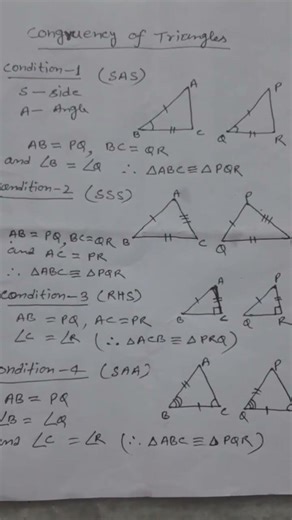 Congruency of Triangles
Condition-1 (SAS)
S - Side
A - Angle
A
B
C
P
Q
R
AB = PQ, BC = QR
and ∠B = ∠Q ∴ △ABC ≡ △PQR
Condition-2 (SSS)
A
B
C
P
Q
AB = PQ, BC = QR
and AC = PR
∴ △ABC ≡ △PQR
Condition-3 (RHS)
A
B
C
P
Q
R
AB = PQ, AC = PR
∠C = ∠R (∴ △ACB ≡ △PRQ)
Condition-4 (SAA)
A
B
C
P
Q
AB = PQ
∠B = ∠Q
and ∠C = ∠R (∴ △ABC ≡ △PQR)